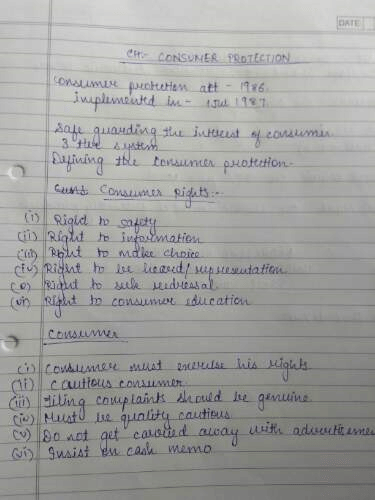 DATE
CH:- CONSUMER PROTECTION
Consumer protection act - 1986.
implemented in - 1 Jul 1987.
Safe guarding the interest of consumer.
3 tier system
Defining the consumer protection.
Consumer Rights:-
(i) Right to safety
(ii) Right to information
(iii) Right to make choice
(iv) Right to be heard/representation
(v) Right to seek redressal
(vi) Right to consumer education
Consumer
(i) Consumer must exercise his rights
(ii) Cautious consumer
(iii) Filing complaints should be genuine
(iv) Must be quality cautious
(v) Do not get carried away with advertiseme
(vi) Insist on cash memo